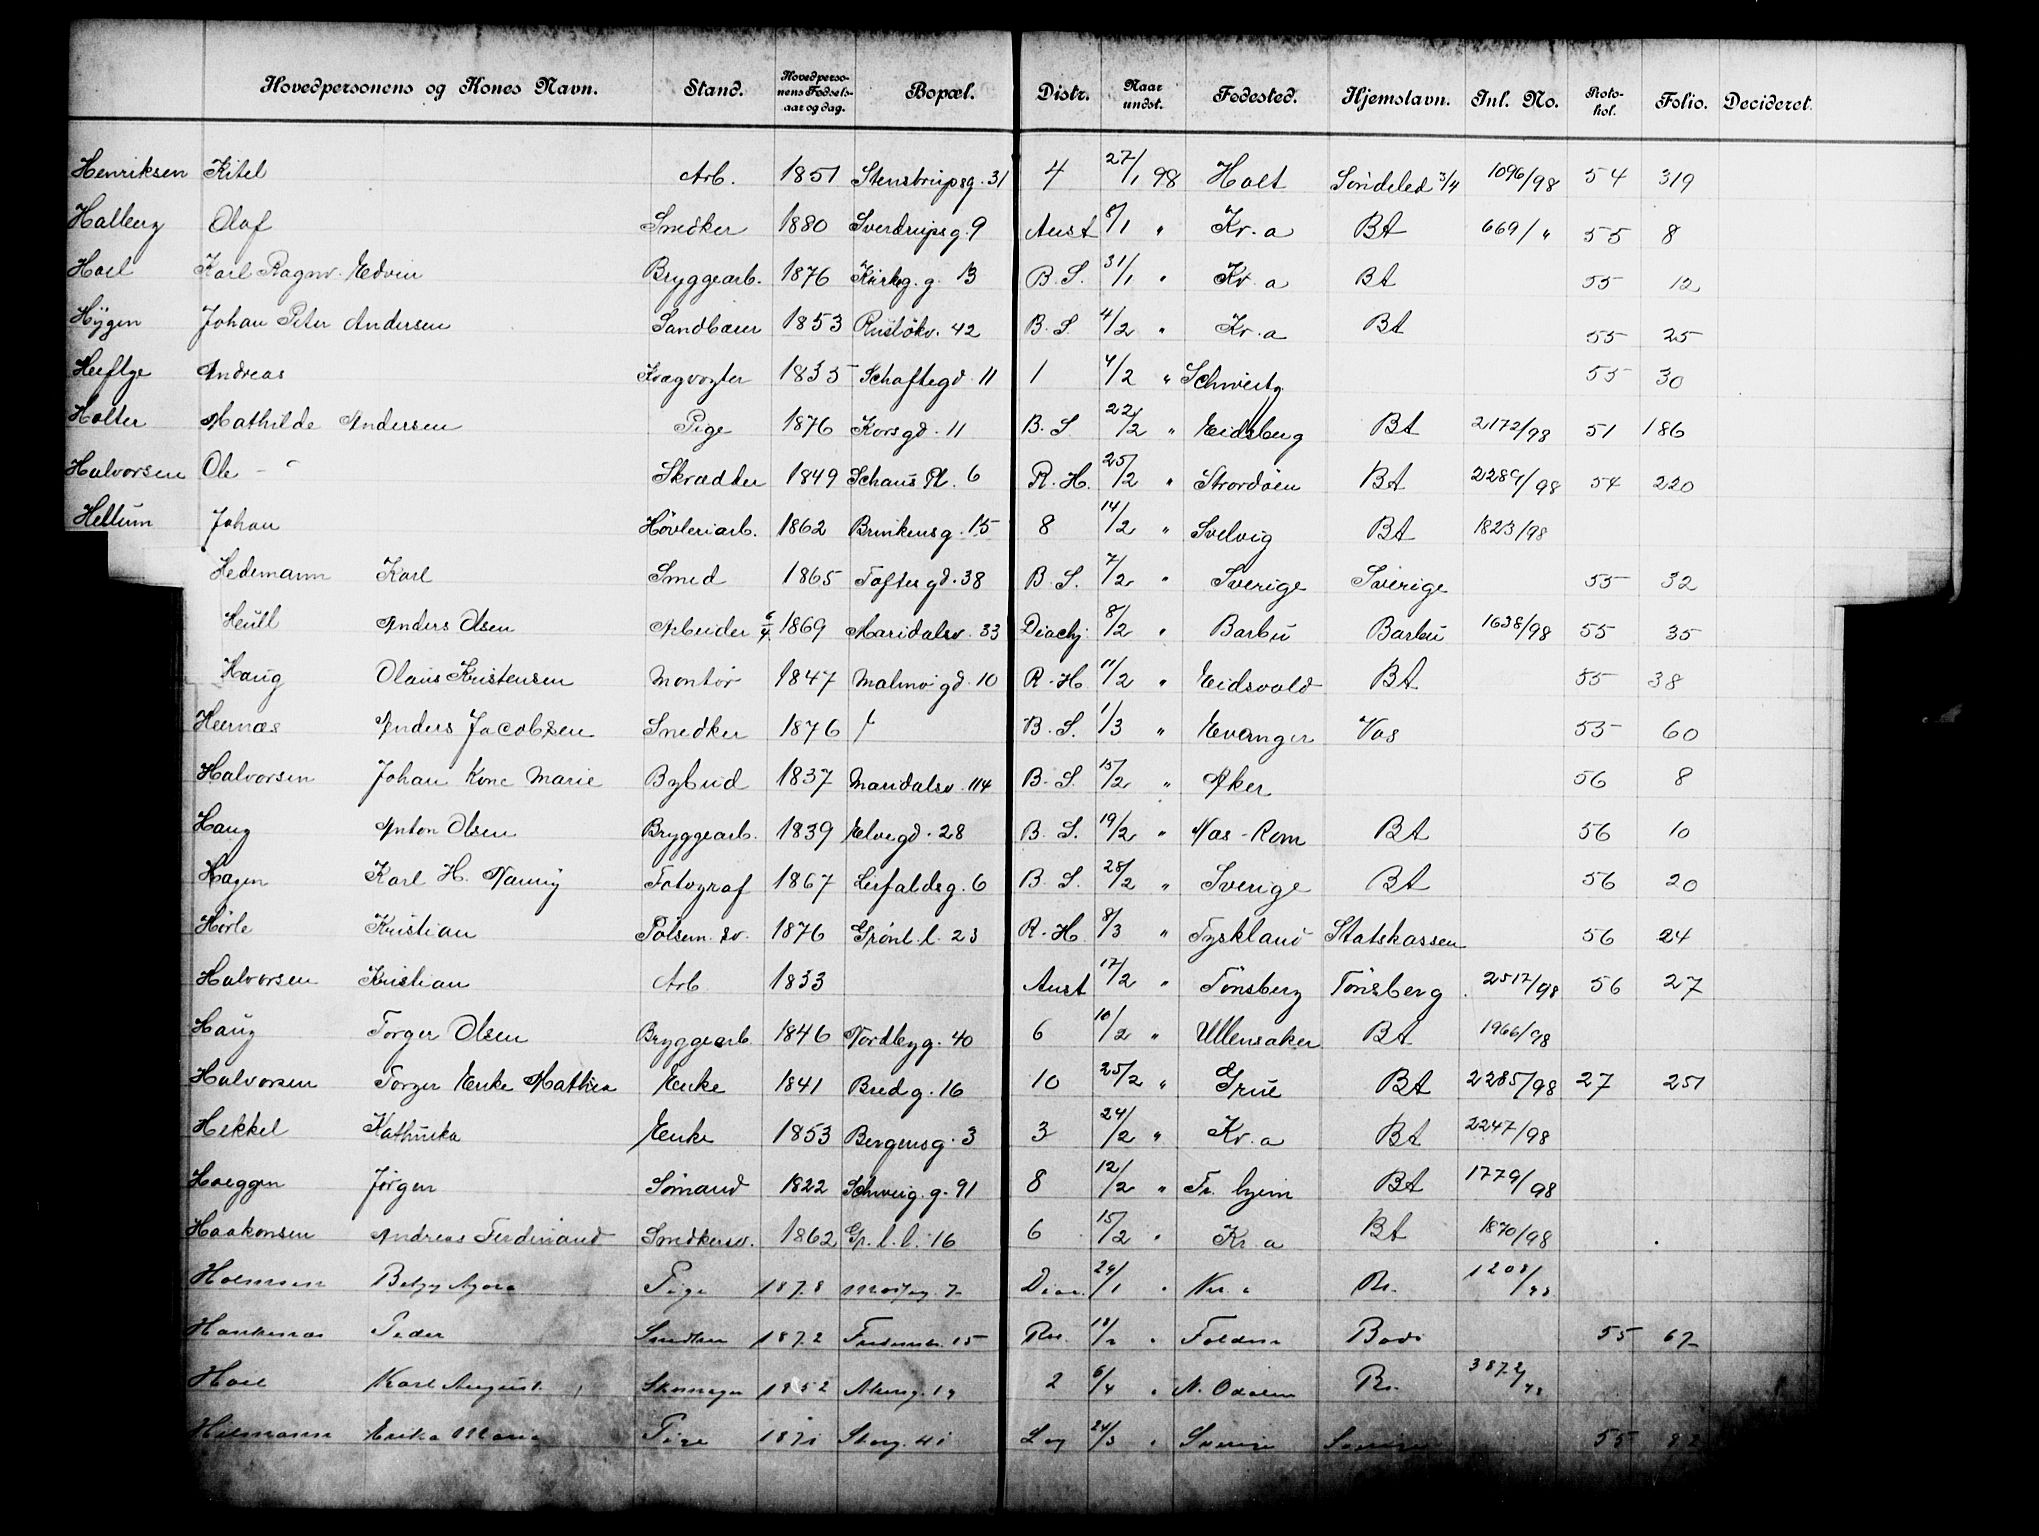 Hovedpersonens og Kones Navn. Stand. Hovedperso-nens Fødsels-aar og dag. Bopæl. Distr. Naar undst. Fødested. Hjemstavn. Inl. No. Proto-kol. Folio. Decideret.
Henriksen Kitel Arb. 1851 Stenstrupsg. 31 4 27/1 98 Holt Søndeled 3/4 1096/98 54 319
Halberg Olaf Snedker 1880 Sverdrupsg. 9 Aust 8/1 " Kr.a BA 669/" 55 8
Hoel Karl Ragnv. Edvin Bryggearb. 1876 Kirkeg. g. 13 B.S. 31/1 " Kr.a BA 55 12
Hygen Johan Peter Andersen Sandbærer 1853 Ruseløkv. 42 B.S. 4/2 " Kr.a BA 55 25
Andreas Kvægvogter 1835 Schaftegd. 11 1 4/2 " 55 30
Holter Mathilde Andersen Pige 1876 Korsgd. 11 B.S. 22/2 " Eidsberg BA 2172/98 51 186
Halvorsen Ole Skrædder 1849 Schaus Pl. 6 R.H. 25/2 " Stordøen BA 2289/98 54 220
Hellum Johan Høvleriarb. 1862 Brinkensg. 15 8 14/2 " Svelvig BA 1823/98
Hedemann Karl Smed 1865 Toftegd. 38 B.S. 7/2 " Sverige Sverige 55 32
Heull Anders Olsen Arbeider 6/4 1869 Maridalsv. 33 Diachj. 8/2 " Barbu Barbu 1638/98 55 35
Haug Olaus Kristensen Montør 1847 Malmøgd. 10 R.H. 11/2 " Eidsvold BA 55 38
Hernæs Anders Jacobsen Snedker 1876 B.S. 1/3 " Evanger Vos 55 60
Halvorsen Johan Kone Marie Bybud 1837 Maridalsv. 114 B.S. 15/2 " Aker 56 8
Haug Anton Olsen Bryggearb. 1839 Elvegd. 28 B.S. 19/2 " Næs-Rom BA 56 10
Hagen Karl H. Nanny Fotograf 1867 Leirfaldsg. 6 B.S. 28/2 " Sverige BA 56 20
Hørle Kristian Pølsem. sv. 1876 Grønl. l. 23 R.H. 8/3 " Tyskland Statskassen 56 24
Halvorsen Kristian Arb 1833 Aust 17/2 " Tønsberg Tønsberg 2517/98 56 27
Haug Torger Olsen Bryggearb. 1846 Nordbyg. 40 6 10/2 " Ullensaker BA 1966/98
Halvorsen Torger Enke Mathea Enke 1841 Bredg. 16 10 25/2 " Grue BA 2285/98 27 251
Hekkel Kathinka Enke 1853 Bergensg. 3 3 24/2 " Kr.a BA 2247/98
Haeggen Jørgen Sømand 1822 Schweig. g. 91 8 12/2 " Tr.hjem BA 1779/98
Haakonsen Andreas Ferdinand Snedkersv. 1862 Gr. l. l. 16 6 15/2 " Kr.a BA 1870/98
Holmsen Betzy Agora Pige 1878 7 24/1 " Kr.a Br. 1208/98
Peder Snedker 1872 15 18/2 " Folden Bodø 55 67
Hoel Karl August Skomager 1852 Akersg. 19 2 6/4 " N. Odalen Br. 3872/98
Erika Maria Pige 1871 Storg. 41 24/3 " Sverige Sverige 55 82